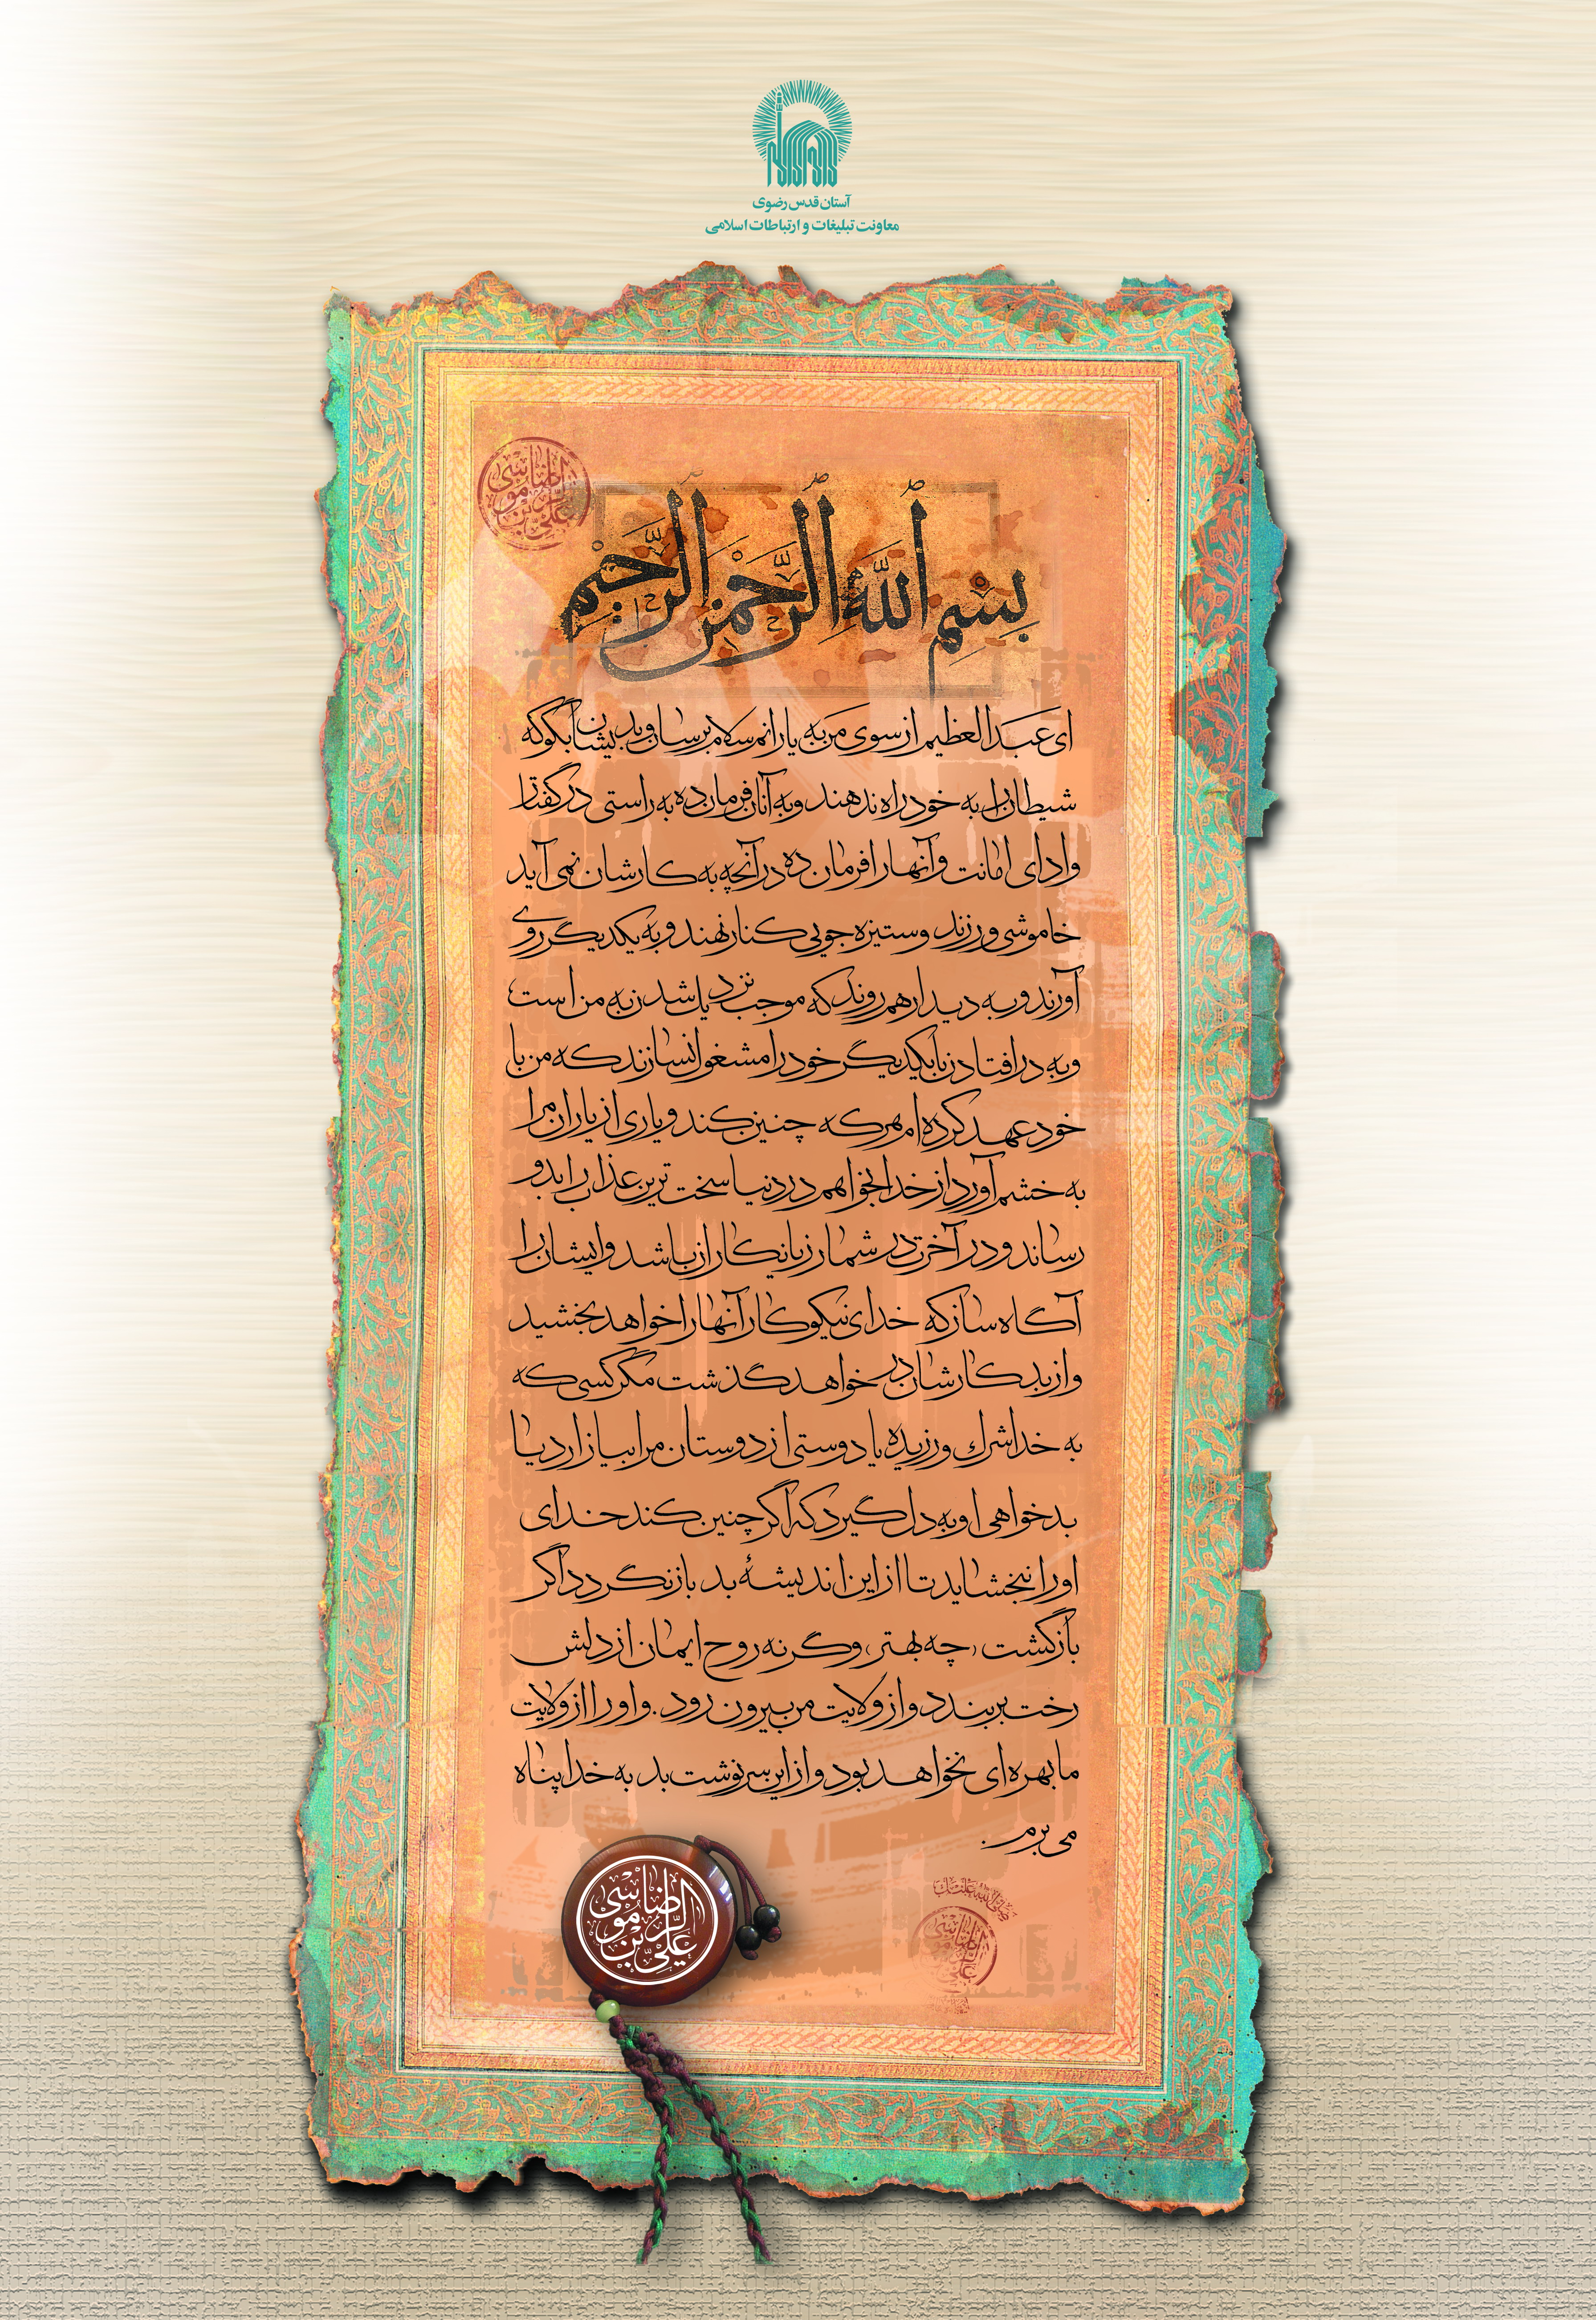 آستان قدس رضوی
معاونت تبلیغات و ارتباطات اسلامی
علی بن موسی الرضا
بِسْمِ ٱللَّهِ ٱلرَّحْمَٰنِ ٱلرَّحِيمِ
ای عبدالعظیم از سوی من به یارانم سلام برسان و بدیشان بگو که
شیطان را به خود راه ندهند و به آنان فرمان ده به راستی در گفتار
و ادای امانت و آنها را فرمان ده در آنچه به کارشان نمی آید
خاموشی ورزند و ستیزه جویی کنار نهند و به یکدیگر روی
آورند و به دیدار هم روند که موجب نزدیک شدن به من است
و به در افتادن با یکدیگر خود را مشغول نسازند که من با
خود عهد کرده ام هر که چنین کند و یاری از یاران مرا
به خشم آورد از خدا بخواهم در دنیا سخت ترین عذاب را بدو
رساند و در آخرت در شمار زیانکاران باشد و ایشان را
آگاه ساز که خدای نیکوکار آنها را خواهد بخشید
و از بدکارشان در خواهد گذشت مگر کسی که
به خدا شرک ورزیده یا دوستی از دوستان مرا بیازارد یا
بدخواهی او به دل گیرد که اگر چنین کند خدای
او را نبخشاید تا از این اندیشهٔ بد باز نگردد اگر
بازگشت، چه بهتر، و گرنه روح ایمان از دلش
رخت بربندد و از ولایت من بیرون رود. و او را از ولایت
ما بهره ای نخواهد بود و از این سرنوشت بد به خدا پناه
می برم.
علی بن موسی الرضا